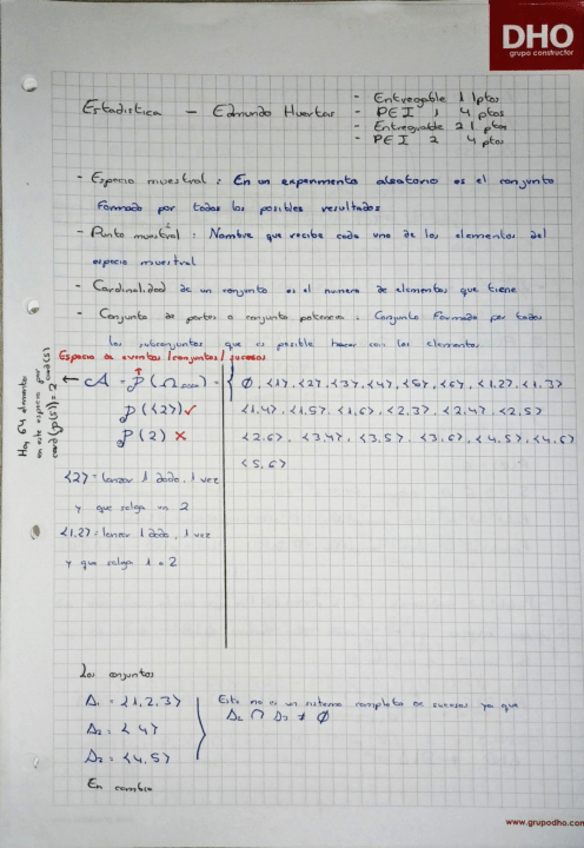 DHO
grupo constructor
Estadística - Edmundo Huertas
- Entregable 1 1 ptos
- PEI 1 4 ptos
- Entregable 2 1 pto
- PEI 2 4 ptos
- Espacio muestral : En un experimento aleatorio es el conjunto
formado por todos los posibles resultados
- Punto muestral : Nombre que recibe cada uno de los elementos del
espacio muestral
- Cardinalidad de un conjunto es el numero de elementos que tiene
- Conjunto de partes o conjunto potencia : Conjunto formado por todos
los subconjuntos que es posible hacer con los elementos
Espacio de eventos / conjuntos / sucesos
Hay 64 elementos
en este espacio por
card(p(s)) = 2^card(s)
← A = P(Ω) = { ∅, <1>, <2>, <3>, <4>, <5>, <6>, <1,2>, <1,3>
<1,4>, <1,5>, <1,6>, <2,3>, <2,4>, <2,5>
<2,6>, <3,4>, <3,5>, <3,6>, <4,5>, <4,6>
<5,6>
P(<2>) ✓
P(2) ×
<2> = lanzar 1 dado, 1 vez
y que salga un 2
<1,2> = lanzar 1 dado, 1 vez
y que salga 1 o 2
Los conjuntos
A₁ = <1,2,3>
A₂ = <4>
A₃ = <4,5>
Esto no es un sistema completo de sucesos ya que
A₂ ∩ A₃ ≠ ∅
En cambio
www.grupodho.com